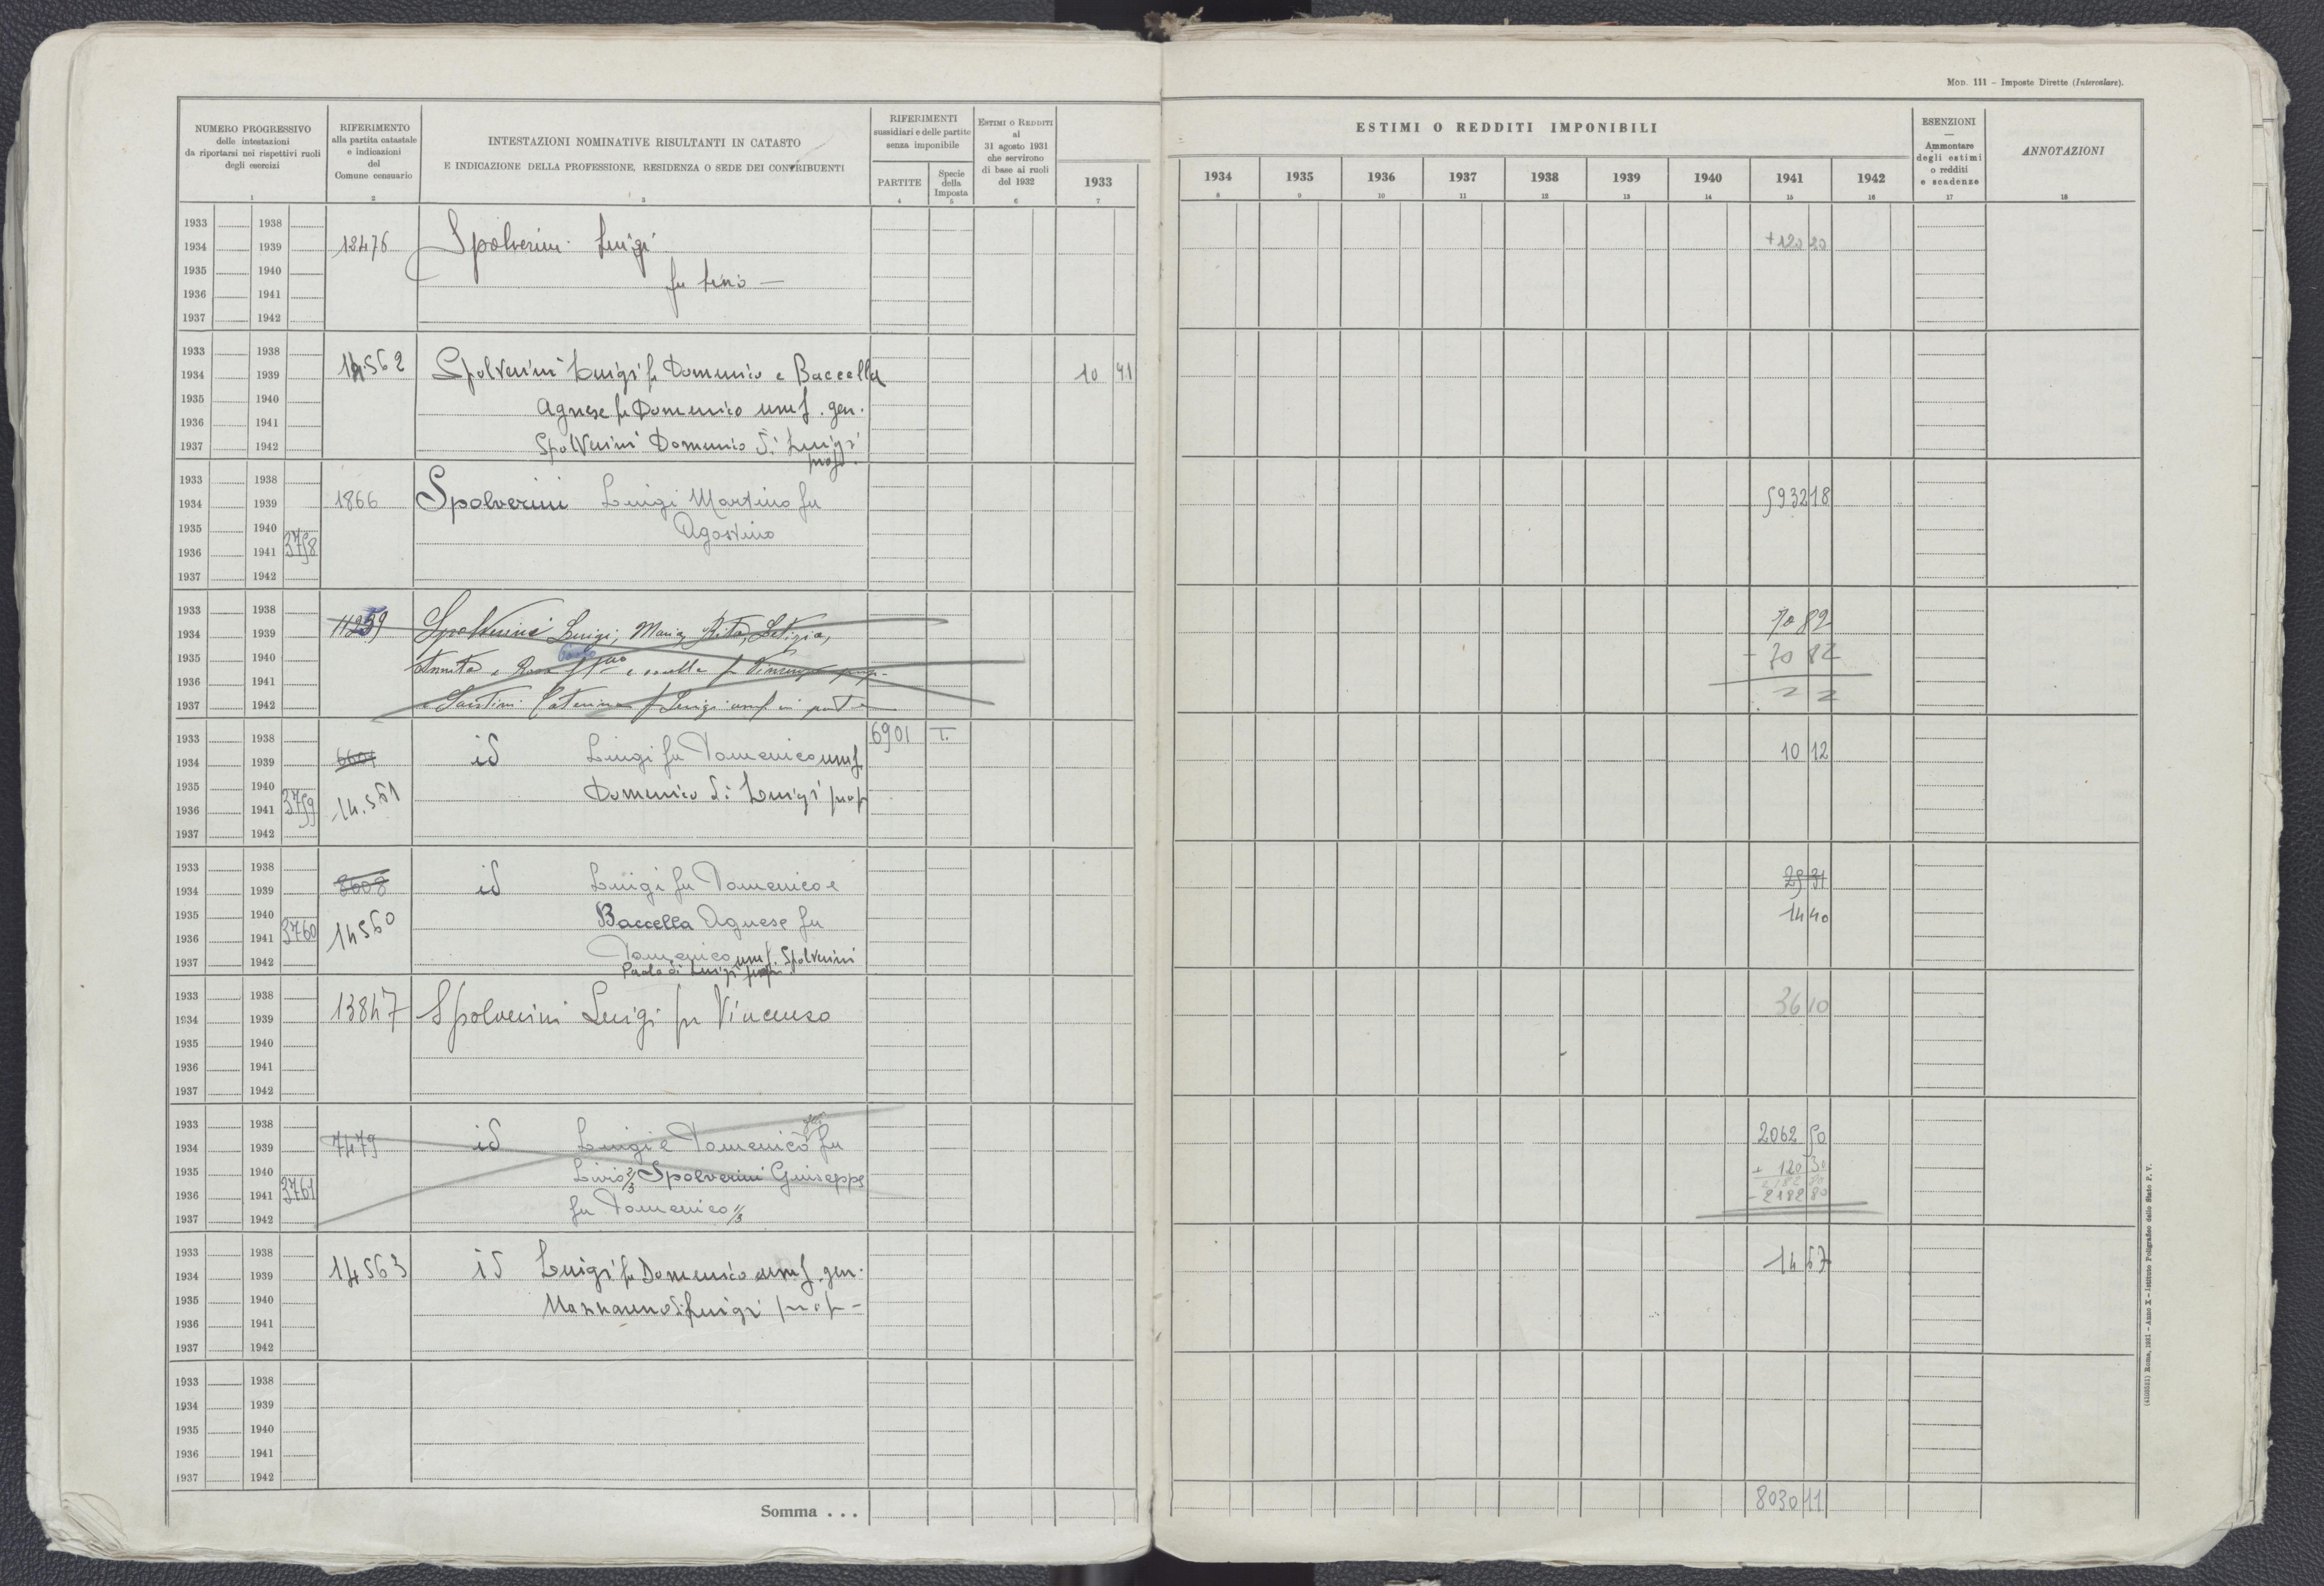 Mod. 111 - Imposte Dirette (Intercalare).
NUMERO PROGRESSIVO
delle intestazioni
da riportarsi nei rispettivi ruoli
degli esercizi
1
RIFERIMENTO
alla partita catastale
e indicazioni
del
Comune censuario
2
INTESTAZIONI NOMINATIVE RISULTANTI IN CATASTO
E INDICAZIONE DELLA PROFESSIONE, RESIDENZA O SEDE DEI CONTRIBUENTI
3
RIFERIMENTI
sussidiari e delle partite
senza imponibile
PARTITE
4
Specie
della
Imposta
5
Estimi o Redditi
al
31 agosto 1931
che servirono
di base ai ruoli
del 1932
6
1933
7
ESTIMI O REDDITI IMPONIBILI
1934 1935 1936 1937 1938 1939 1940 1941 1942
8 9 10 11 12 13 14 15 16
ESENZIONI
—
Ammontare
degli estimi
o redditi
e scadenze
17
ANNOTAZIONI
18
1933 1938
1934 1939 Spolverini Luigi +120 20
1935 1940
1936 1941 fu
1937 1942
1933 1938
1934 1939 14562 Spolverini Luigi fu Domenico e Baccella 10 41
1935 1940 Agnese fu Domenico usuf. gen.
1936 1941
1937 1942 Spolverini Domenico di Luigi
prop.
1933 1938
1934 1939 1866 Spolverini Luigi Martino fu 5932 18
1935 1940 Agostino
1936 1941 3758
1937 1942
1933 1938 70 82
1934 1939 11259 Spolverini Luigi, Maria, Rita, Letizia,
1935 1940 - 70 82
1936 1941
1937 1942 Caterina f Luigi usuf in parte
1933 1938 6901 T.
1934 1939 6601 id Luigi fu Domenico usuf 10 12
1935 1940 Domenico di Luigi prop
1936 1941 3759 14.561
1937 1942
1933 1938
1934 1939 8608 id Luigi fu Domenico e 25 31
1935 1940 Baccella Agnese fu 14 40
1936 1941 3760 14560
1937 1942 Domenico usuf. Spolverini
Paolo di Luigi prop
1933 1938
1934 1939 13847 Spolverini Luigi fu Vincenzo 36 10
1935 1940
1936 1941
1937 1942
1933 1938
1934 1939 7479 id Luigi e Domenico fu 2062 50
1935 1940 Livio 2/3 Spolverini Giuseppe + 120 30
2182 80
1936 1941 3761 - 2182 80
1937 1942 fu Domenico 1/3
1933 1938
1934 1939 14563 id Luigi fu Domenico usuf. gen. 14 57
1935 1940 di Luigi prop -
1936 1941
1937 1942
1933 1938
1934 1939
1935 1940
1936 1941
1937 1942
Somma . . . 8030 11